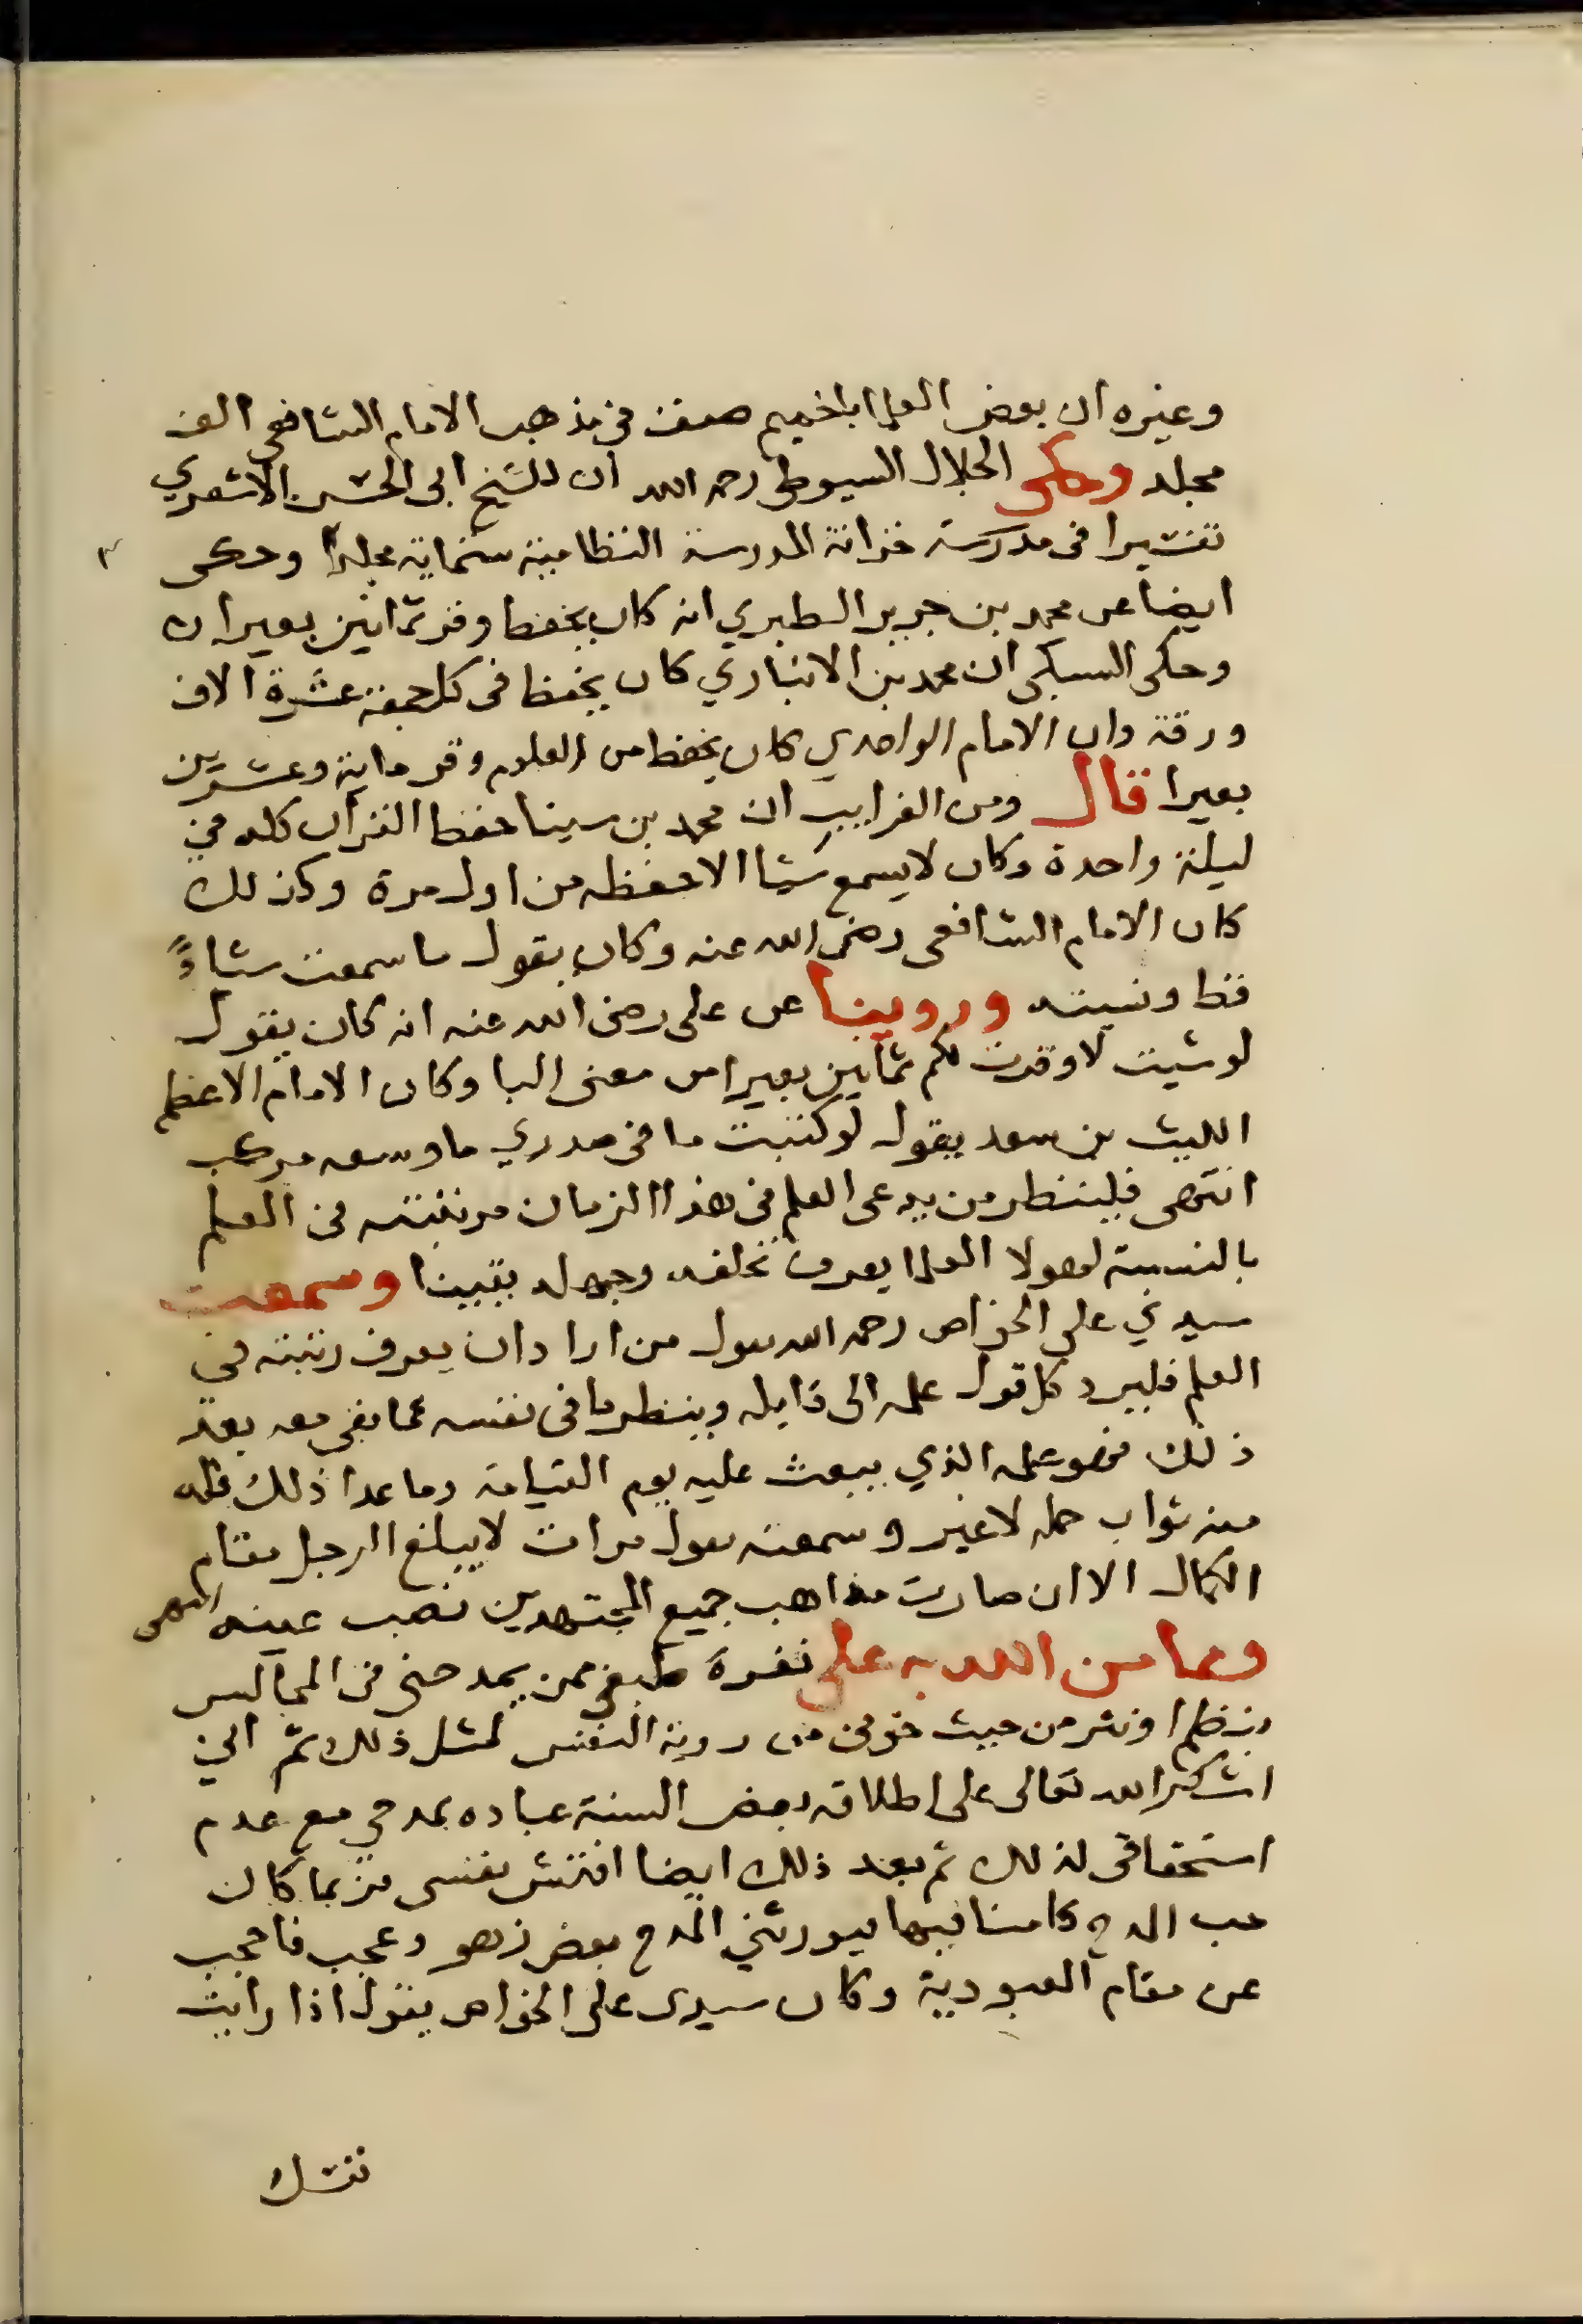 وغيره ان بعض العلما باخميم صنف في مذهب الامام الشافعي الف
مجلد وحكى الجلال السيوطي رحمه الله ان للشيخ ابى الحسن الاشعري
تفسيرا فى مدرسة خزانة المدرسة النظامية ستماية مجلدا وحكى
ايضا عن محمد بن جرير الطبري انه كان يحفظ وقر ثمانين بعيرا
وحكى السبكى ان محمد بن الانباري كان يحفظ فى كل جمعة عشرة الاف
ورقة وان الامام الواحدي كان يحفظ من العلوم وقر ماية وعشرين
بعيرا قال ومن الغرايب ان محمد بن سينا حفظ القران كله في
ليلة واحدة وكان لا يسمع شيا الا حفظه من اول مرة وكذلك
كان الامام الشافعى رضى الله عنه وكان يقول ما سمعت شيا
قط ونسيته وروينا عن على رضى الله عنه انه كان يقول
لو شيت لاوقرت لكم ثمانين بعيرا من معنى البا وكان الامام الاعظم
الليث بن سعد يقول لو كتبت ما فى صدري ما وسعه مركب
انتهى فلينظر من يدعى العلم فى هذا الزمان مرتبته فى العلم
بالنسبة لهولا العلما يعرف تخلفه وجهله يقينا وسمعت
سيدي على الخواص رحمه الله يقول من اراد ان يعرف رتبته في
العلم فليرد كل قول علمه الى قايله وينظر ما فى نفسه مما بقى معه بعد
ذلك فهو علمه الذي يبعث عليه يوم القيامة وما عدا ذلك فله
منه ثواب حمله لا غير وسمعته يقول مرات لا يبلغ الرجل مقام
الكمال الا ان صارت مذاهب جميع المجتهدين نصب عينه انتهى
ومما من الله به على نفرة طبعى ممن يمدحنى فى المجالس
بنظم او نثر من حيث خوفى من روية النفس لمثل ذلك ثم اني
اشكر الله تعالى على اطلاقه بعض السنة عباده بمدحي مع عدم
استحقاقى لذلك ثم بعد ذلك ايضا افتش نفسى فربما كان
حب المدح كامنا فيها فيورثني المدح بعض زهو وعجب فاحجب
عن مقام العبودية وكان سيدى على الخواص يقول اذا رايت
نفسك